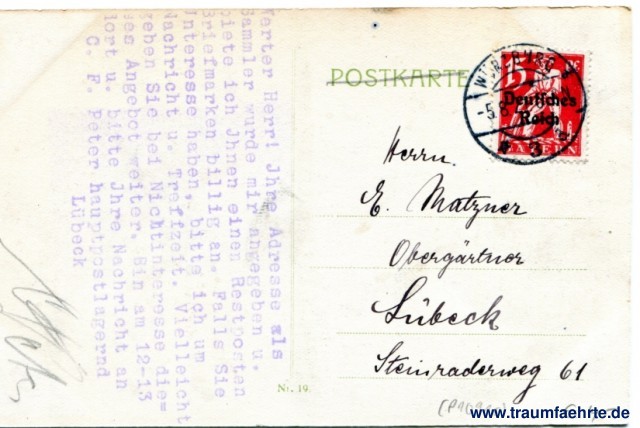 Werter Herr! Jhre Adresse als
Sammler wurde mir angegeben u.
biete ich Jhnen einen Restposten
Briefmarken billig an. Falls Sie
Interesse haben, bitte ich um
Nachricht u. Treffzeit. Vielleicht
geben Sie bei Nichtinteresse die-
ses Angebot weiter. Bin am 12-13
dort u. bitte Jhre Nachricht an
C. F. Peter hauptpostlagernd
Lübeck
POSTKARTE
WÜRZBURG 2
-5.8
* 3
15
Deutsches
Reich
BAYERN
Herrn
E. Matzner
Obergärtner
Lübeck
Steinraderweg 61
Nr. 19.
www.traumfaehrte.de